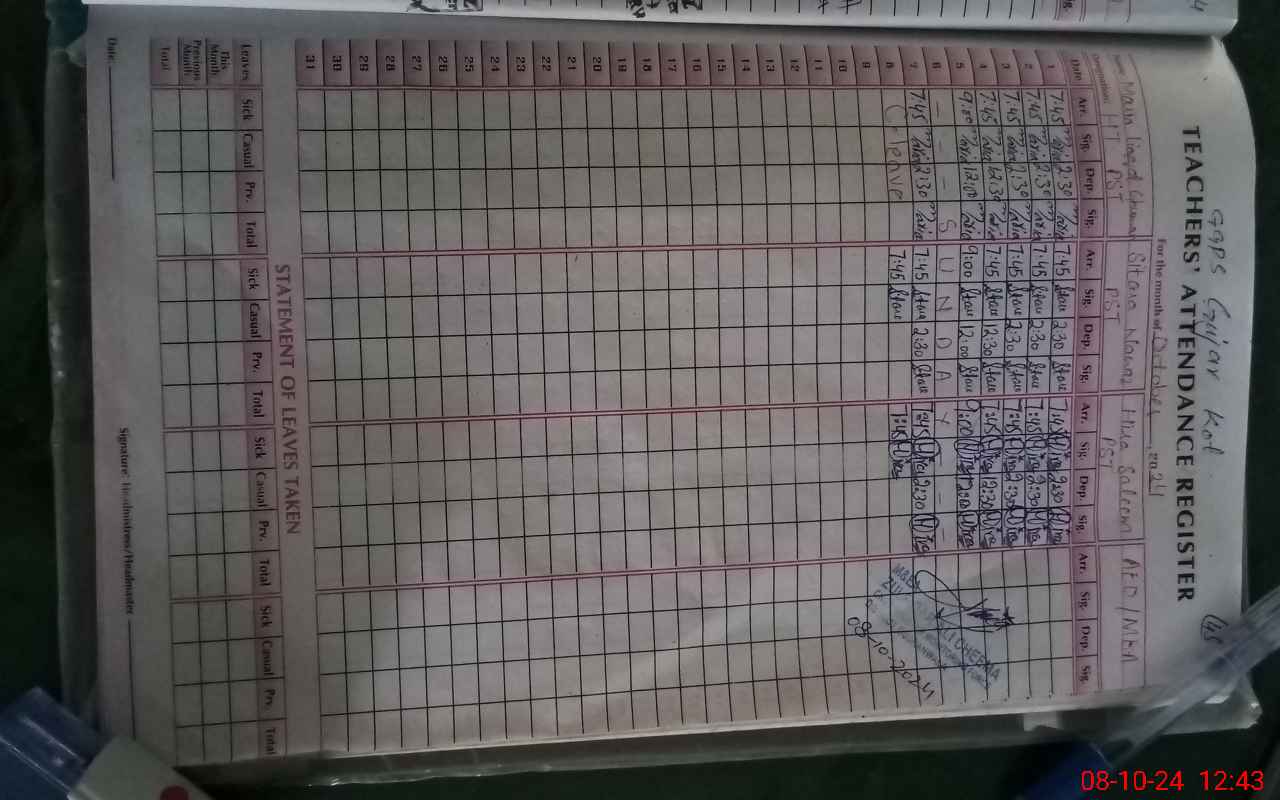 GGPS Gujar Kot
TEACHERS' ATTENDANCE REGISTER
For the month of October, 2024
45
Name Sitara Nawaz Hira Saleem AEO/MEA
Designation HT PST PST PST
Date Arr. Sig. Dep. Sig. Arr. Sig. Dep. Sig. Arr. Sig. Dep. Sig. Arr. Sig. Dep. Sig.
1 7:45 2:30 7:45 Star 2:30 Star 7:45 Hira 2:30 Hira
2 7:45 2:30 7:45 Star 2:30 Star 7:45 Hira 2:30 Hira
3 7:45 2:30 7:45 Star 2:30 Star 7:45 Hira 2:30 Hira
4 7:45 12:30 7:45 Star 12:30 Star 7:45 Hira 12:30 Hira
5 9:00 12:00 9:00 Star 12:00 Star 9:00 Hira 12:00 Hira
6 - - - S U N D A Y - - -
7 7:45 2:30 7:45 Star 2:30 Star 7:45 Hira 2:30 Hira
8 C-leave 7:45 Star 7:45 Hira
08-10-2024
9
10
11
12
13
14
15
16
17
18
19
20
21
22
23
24
25
26
27
28
29
30
31
STATEMENT OF LEAVES TAKEN
Leaves Sick Casual Prv. Total Sick Casual Prv. Total Sick Casual Prv. Total Sick Casual Prv. Total
This Month
Previous Month
Total
Date: Signature: Headmistress/Headmaster
08-10-24 12:43